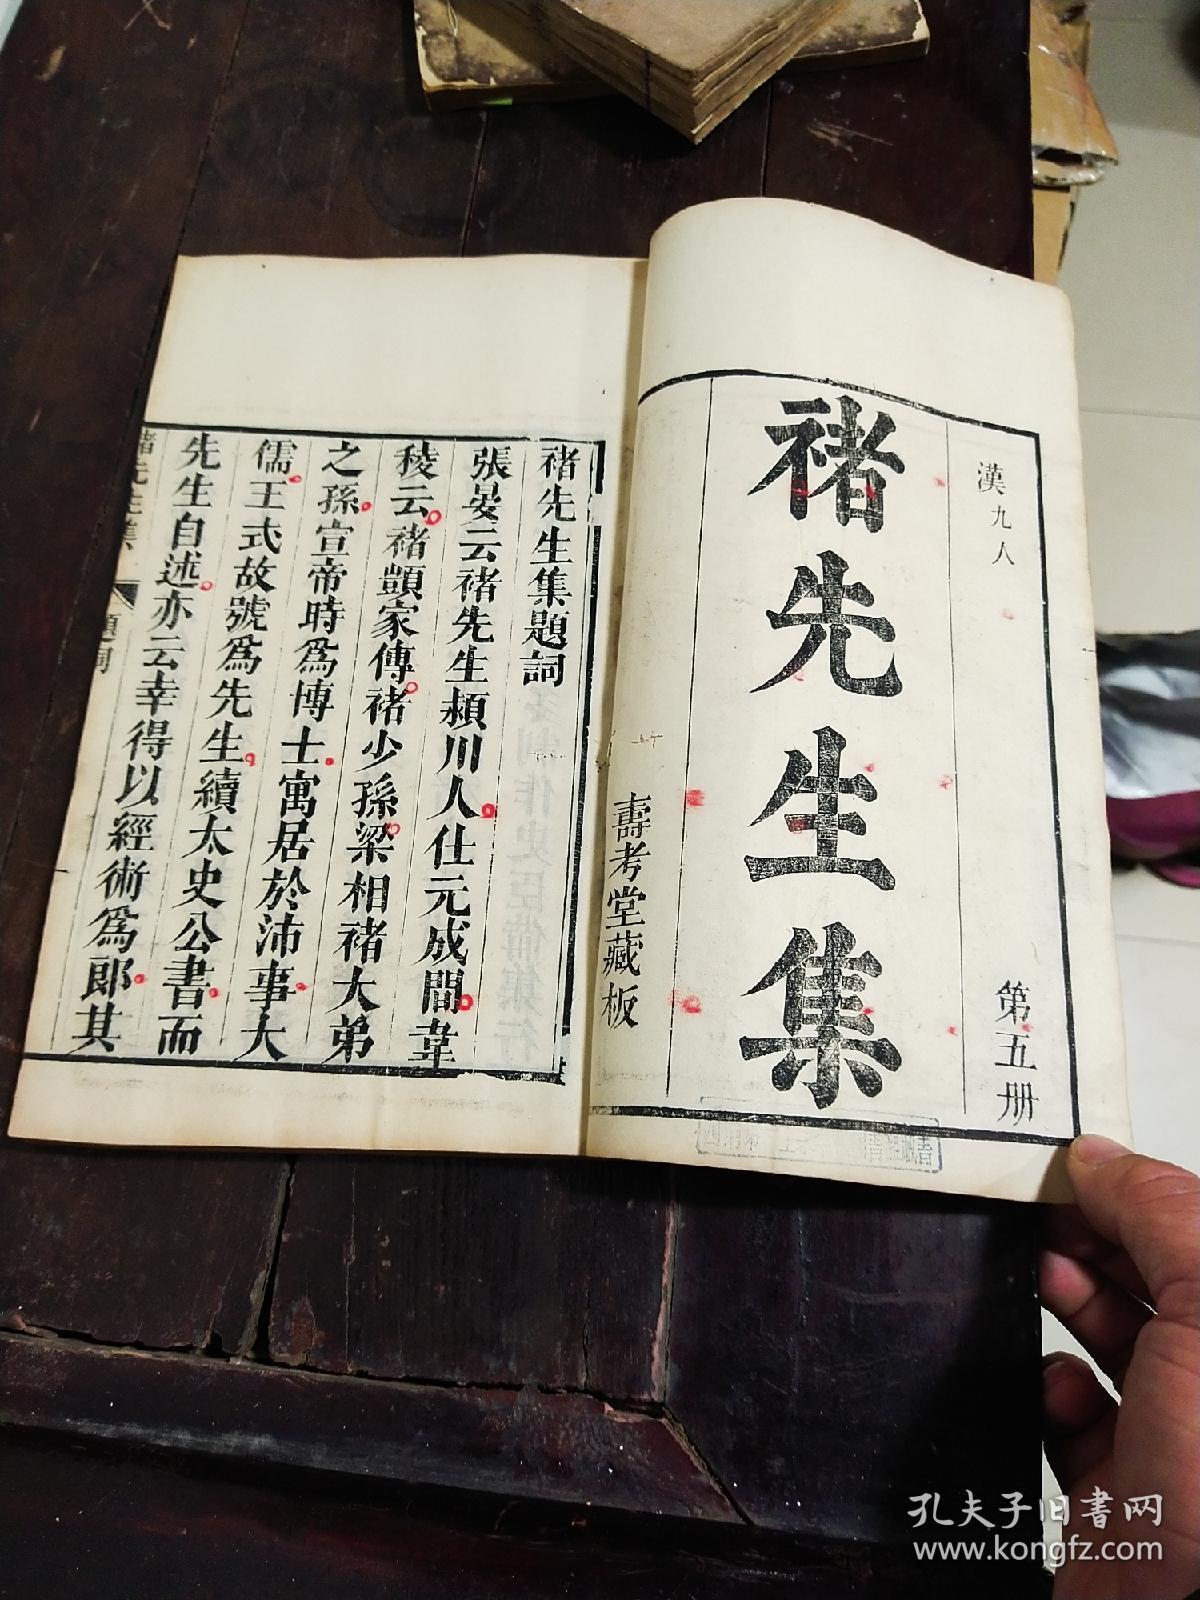 漢九人
第五册
褚先生集
壽考堂藏板
褚先生集題詞
張晏云褚先生潁川人仕元成間韋
稜云褚顗家傳褚少孫梁相褚大弟
之孫宣帝時爲博士寓居於沛事大
儒王式故號爲先生續太史公書而
先生自述亦云幸得以經術爲郎其
褚先生集
題詞
孔夫子旧書网
www.kongfz.com